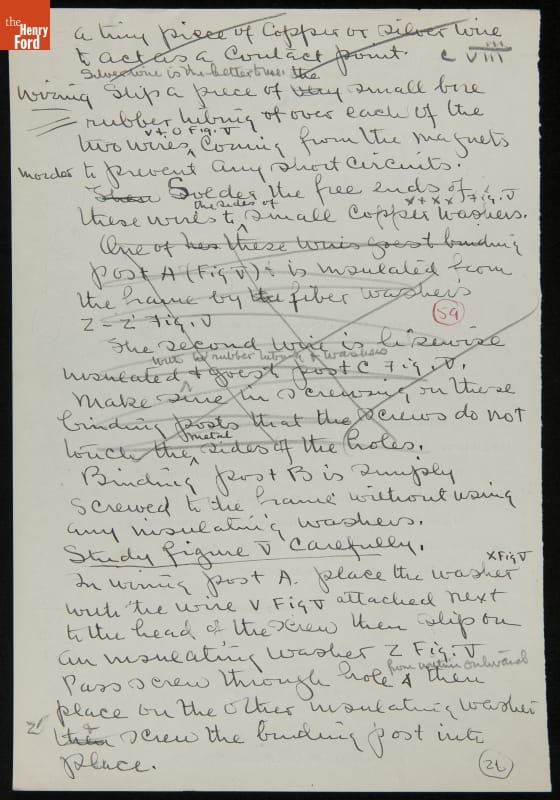 the
Henry
Ford
a tiny piece of copper or silver wire
to act as a Contact point. C VIII
Silver wire is the better one. the
Wiring Slip a piece of very small bore
rubber tubing of over each of the
V + O Fig. V
two wires coming from the magnets
in order to prevent any short circuits.
Then Solder the free ends of x + x x) Fig. V
the sides of
these wires to small copper washers.
One of has these wires goest binding
post A (Fig V) & is insulated from
the frame by the fiber washers
Z - Z' Fig. V
59
The second wire is likewise
with the rubber tubing & washers
insulated & goest post C Fig. V.
Make sure in screwing on these
binding posts that the screws do not
metal
touch the sides of the holes.
Binding post B is simply
screwed to the frame without using
any insulating washers.
Study figure V Carefully.
X Fig V
In wiring post A. place the washer
with the wire V Fig V attached next
to the head of the screw then slip on
an insulating washer Z Fig. V
from within outward
Pass screw through hole & then
place on the other insulating washer
Z' & then screw the binding post into
place.
26